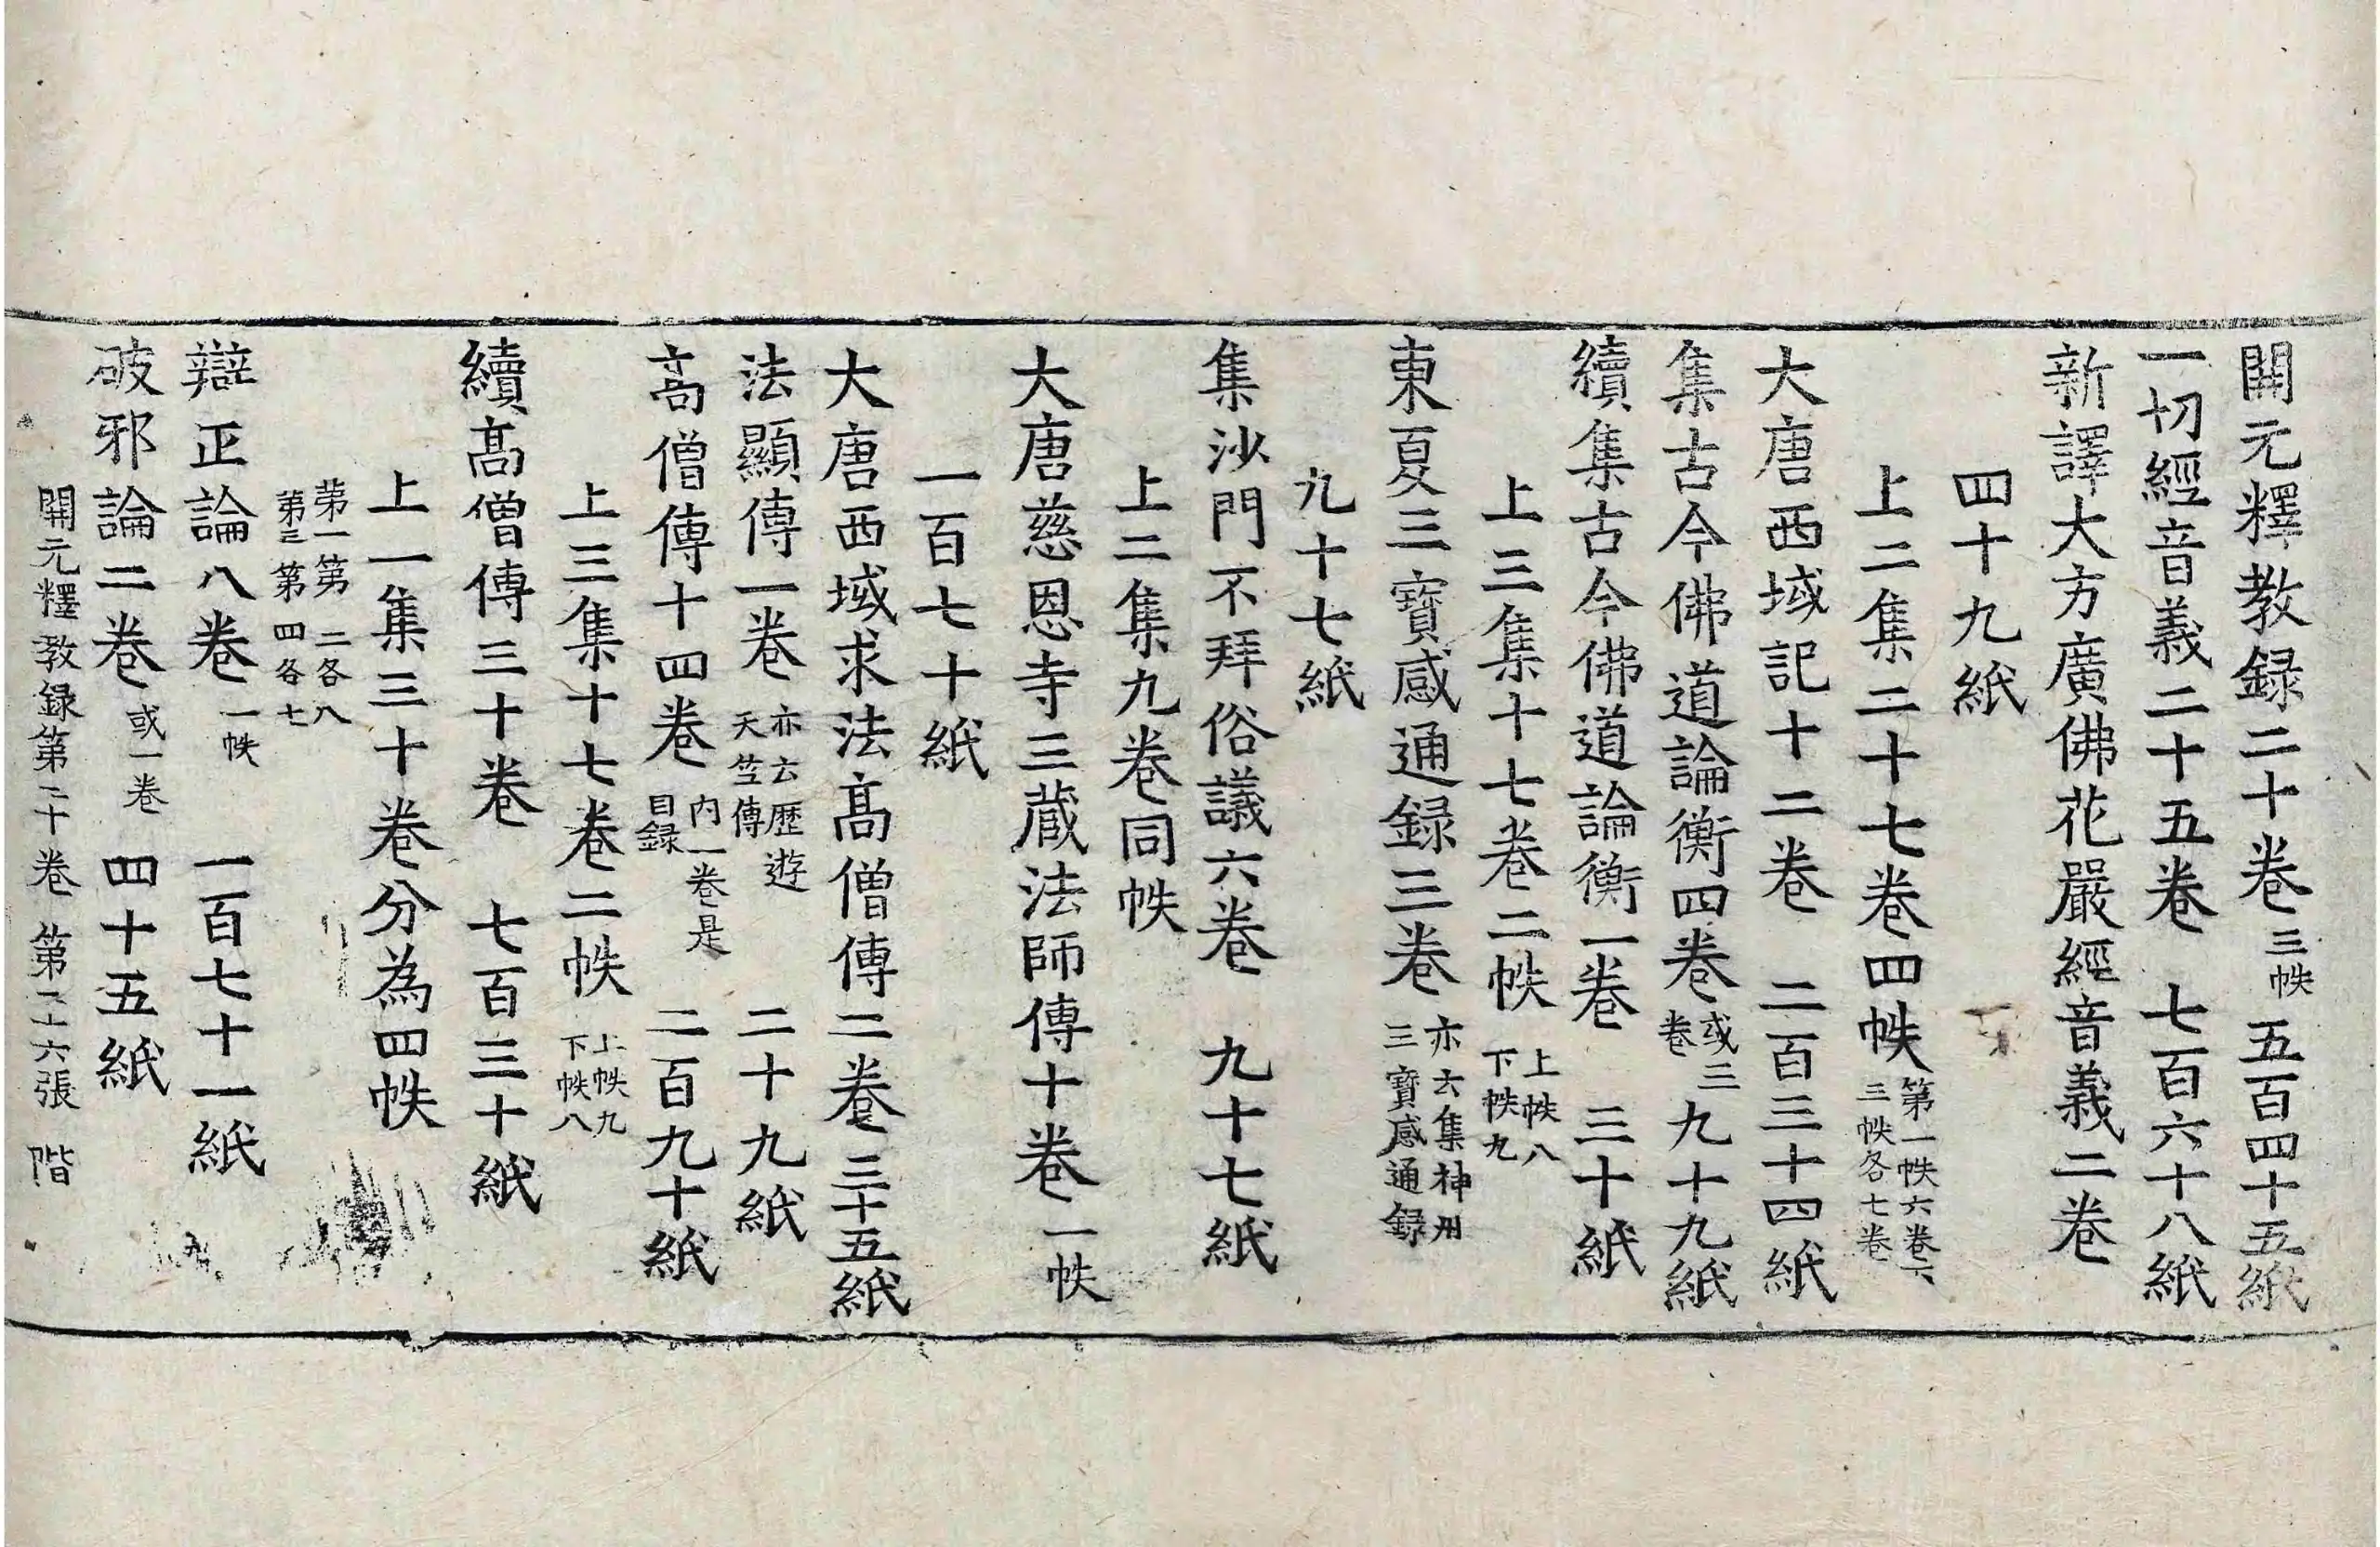 開元釋教録二十卷三帙 五百四十五紙
一切經音義二十五卷 七百六十八紙
新譯大方廣佛花嚴經音義二卷
四十九紙
上二集二十七卷四帙第一帙六卷下三帙各七卷
大唐西域記十二卷 二百三十四紙
集古今佛道論衡四卷或三卷 九十九紙
續集古今佛道論衡一卷 三十紙
上三集十七卷二帙上帙八下帙九
東夏三寶感通録三卷亦云集神州三寶感通録
九十七紙
集沙門不拜俗議六卷 九十七紙
上二集九卷同帙
大唐慈恩寺三藏法師傳十卷一帙
一百七十紙
大唐西域求法髙僧傳二卷 三十五紙
法顯傳一卷亦云歷遊天竺傳 二十九紙
髙僧傳十四卷内一卷是目録 二百九十紙
上三集十七卷二帙上帙九下帙八
續髙僧傳三十卷 七百三十紙
上一集三十卷分為四帙
第一第二各八第三第四各七
辯正論八卷一帙 一百七十一紙
破邪論二卷或一卷 四十五紙
開元釋教録第二十卷 第二十六張 階